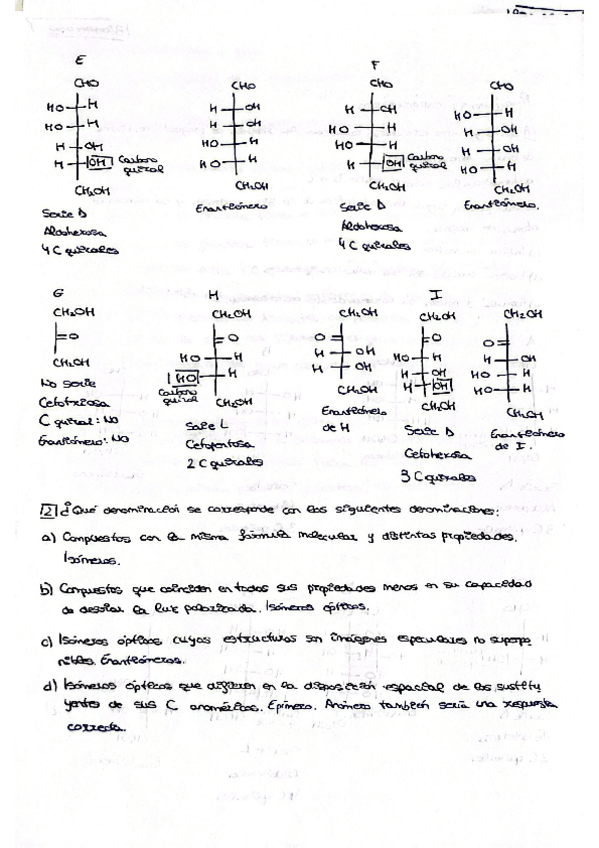 E
F
CHO
CHO
CHO
CHO
HO H
H OH
H OH
HO H
HO H
H OH
HO H
H OH
H OH
HO H
HO H
H OH
H OH Carbono quiral
HO H
H OH Carbono quiral
HO H
CH₂OH
CH₂OH
CH₂OH
CH₂OH
Serie D
Enantiómero
Serie D
Enantiómero.
Aldohexosa
Aldohexosa
4 C quirales
4 C quirales
G
H
I
CH₂OH
CH₂OH
CH₂OH
CH₂OH
CH₂OH
=O
=O
O=
=O
O=
CH₂OH
HO H
H OH
HO H
H OH
HO H
H OH
H OH
HO H
Carbono quiral
H OH
HO H
CH₂OH
CH₂OH
CH₂OH
CH₂OH
No serie
Cetotriosa
C quiral: NO
Enantiómero: NO
Serie L
Cetopentosa
2 C quirales
Enantiómero
de H
Serie D
Cetohexosa
3 C quirales
Enantiómero
de I.
12 ¿Qué denominación se corresponde con las siguientes denominaciones:
a) Compuestos con la misma fórmula molecular y distintas propiedades.
Isómeros.
b) Compuestos que coinciden en todas sus propiedades menos en su capacidad
de desviar la luz polarizada. Isómeros ópticos.
c) Isómeros ópticos cuyas estructuras son imágenes especulares no superpo
nibles. Enantiómeros.
d) Isómeros ópticos que difieren en la disposición espacial de los sustitu
yentes de sus C anoméricos. Epímero. Anómero también sería una respuesta
correcta.